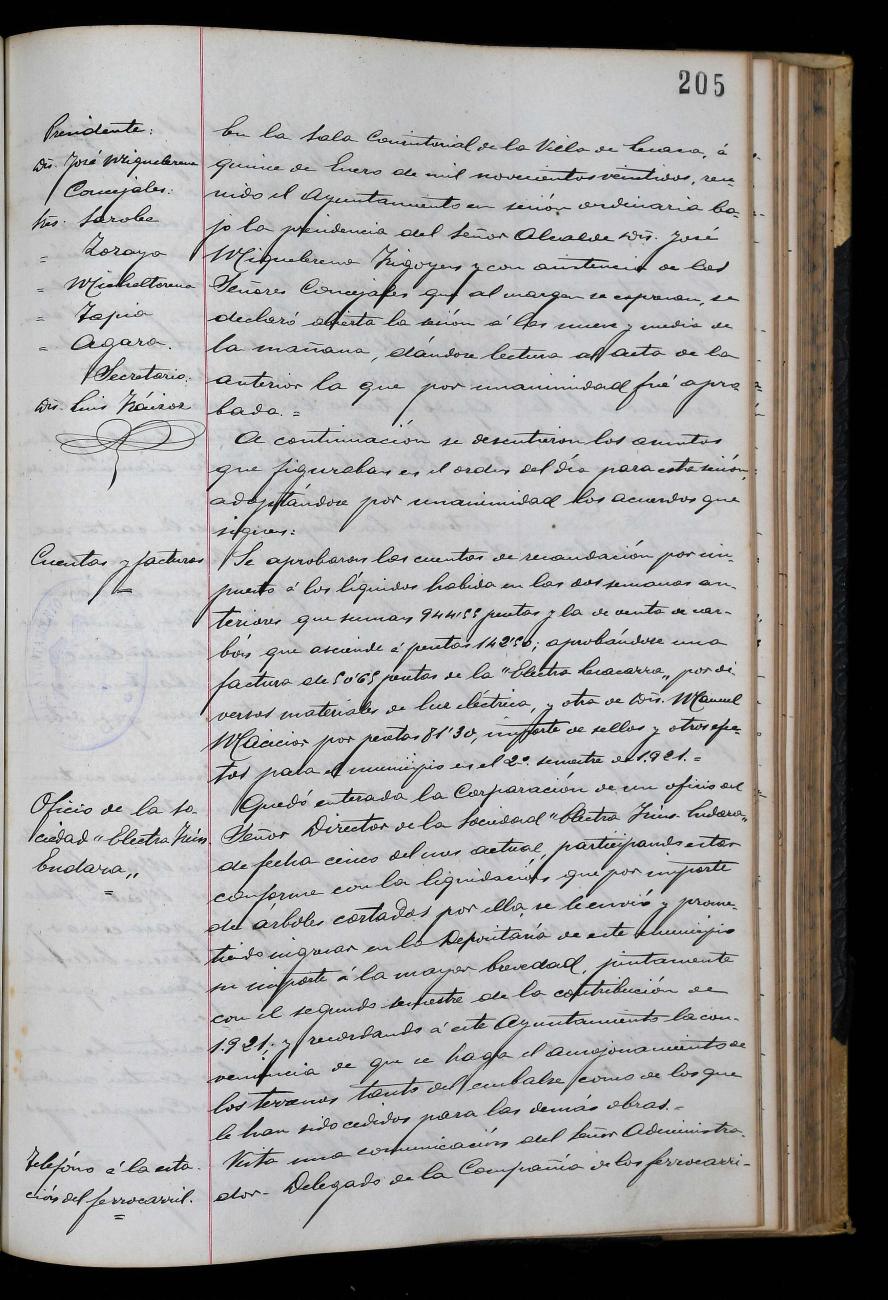 205
Presidente:
Dn. José Miguelerena
Concejales:
Sres. Sarobe
" Loraya
" Micheltorena
" Tapia
" Agara.
Secretario:
Dn. Luis
En la Sala Consistorial de la Villa de Lesaca, á
quince de Enero de mil novecientos veintidos, reu-
nido el Ayuntamiento en sesión ordinaria ba-
jo la presidencia del Señor Alcalde Dn. José
Miguelerena Irigoyen y con asistencia de los
Señores Concejales que al margen se expresan, se
declaró abierta la sesión á las nueve y media de
la mañana, dándose lectura al acta de la
anterior la que por unanimidad fué apro-
bada. =
A continuación se descutieron los asuntos
que figuraban en el orden del día para esta sesión,
adoptándose por unanimidad los acuerdos que
siguen:
Cuentas y facturas
Se aprobaron las cuentas de recaudación por im-
puesto á los líquidos habida en las dos semanas an-
teriores que suman 944'55 pesetas y la de venta de car-
bón que asciende á pesetas 142'50; aprobándose una
factura de 50'65 pesetas de la "Electra Lesacarra" por di-
versos materiales de luz eléctrica, y otra de Dn. Manuel
Macicior por pesetas 81'30, importe de sellos y otros efec-
tos para el municipio en el 2º semestre de 1.921. =
Oficio de la So-
ciedad "Electra Irún
Endara"
Quedó enterada la Corporación de un oficio del
Señor Director de la Sociedad "Electra Irún-Endara"
de fecha cinco del mes actual, participando estar
conforme con la liquidación que por importe
de arboles cortados por ella se le envió y prome-
tiendo ingresar en la Depositaría de este Municipio
su importe á la mayor brevedad, juntamente
con el segundo semestre de la contribución de
1.921; y recordando á este Ayuntamiento la con-
veniencia de que se haga el amojonamiento de
los terrenos tanto del embalse como de los que
le han sido cedidos para las demás obras. =
Telefóno á la esta-
ción del ferrocarril.
Vista una comunicación del Señor Administra-
dor-Delegado de la Compañía de los ferrocarri-